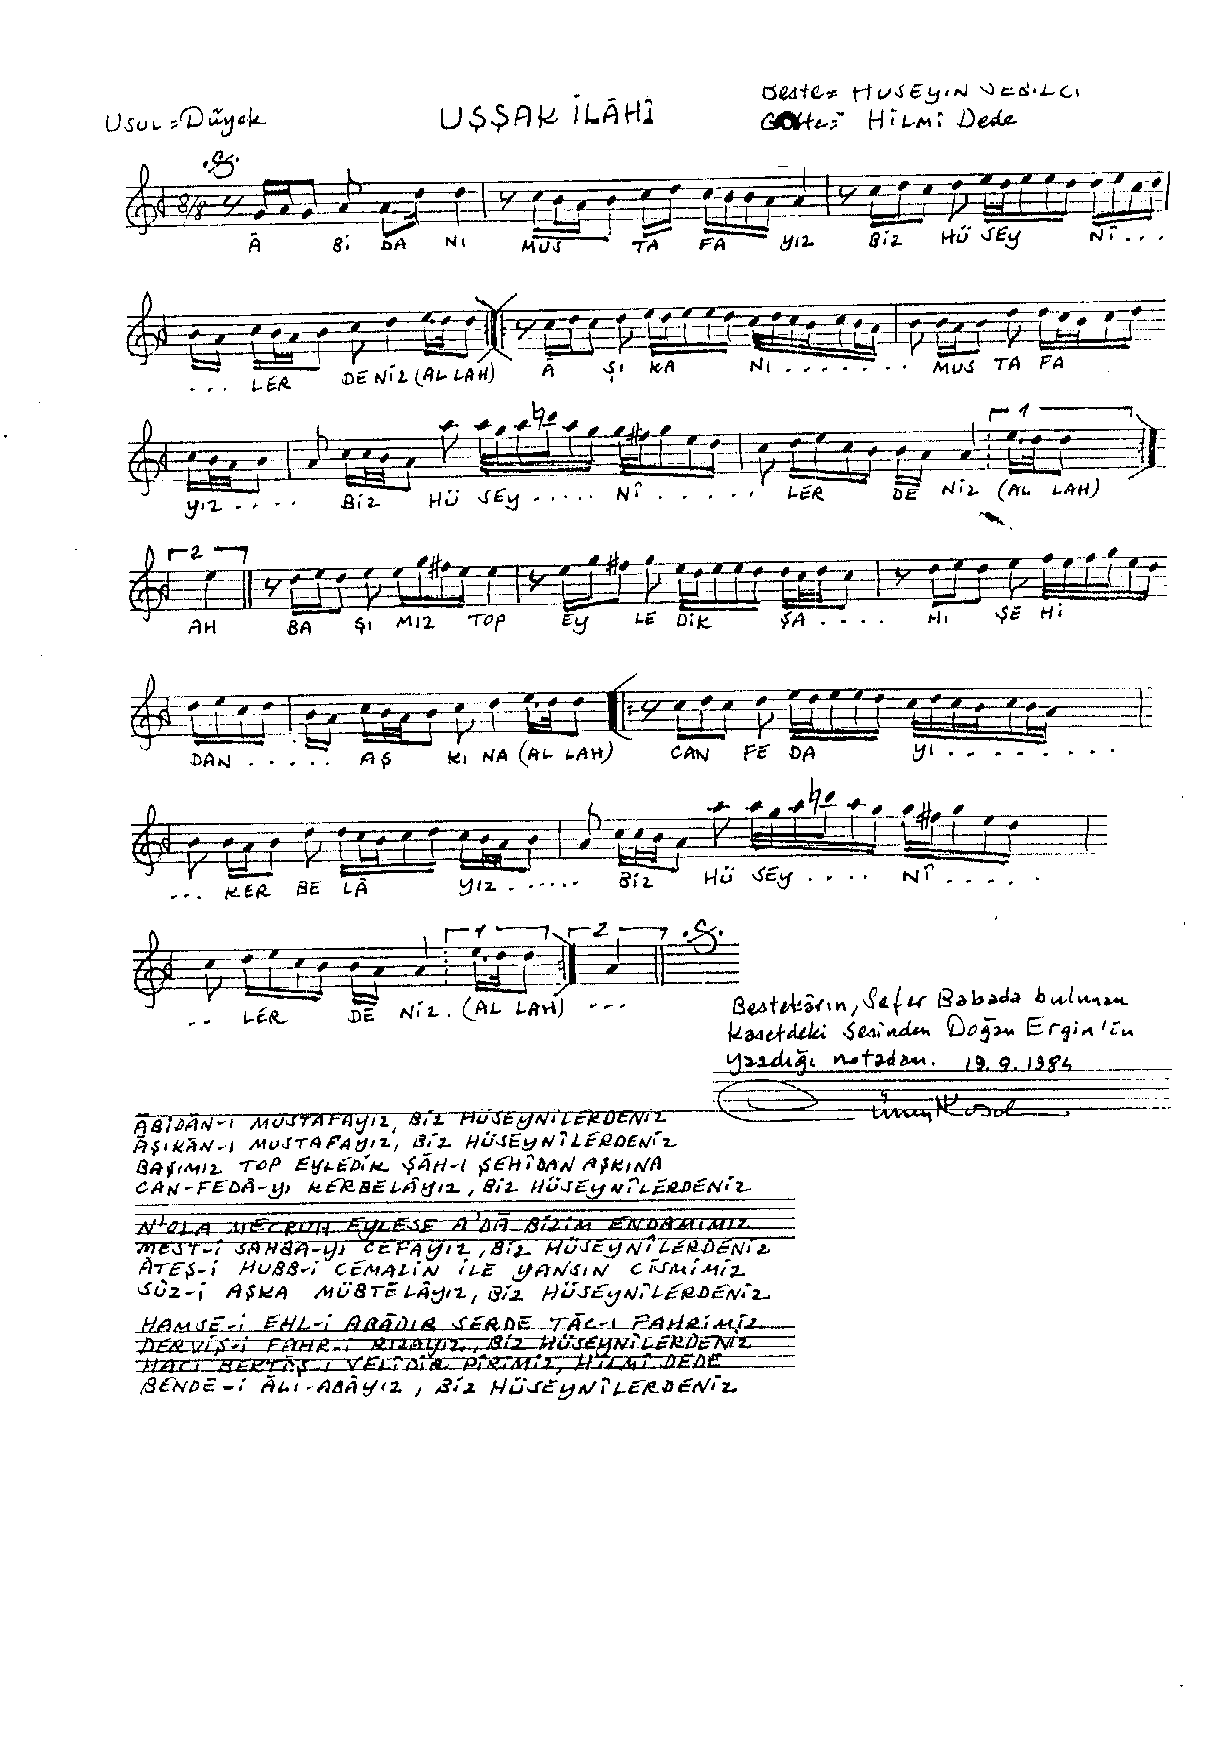 Usul = Düyek
UŞŞAK İLÂHÎ
Beste = HÜSEYİN SEBİLCİ
Güfte = HİLMİ Dede
8/8
Â Bİ DA NI MUS TA FA YIZ BİZ HÜ SEY NÎ . . .
. . . LER DE NİZ (AL LAH) Â ŞI KA NI . . . . . . . MUS TA FA
1
YIZ . . . . BİZ HÜ SEY . . . . . NÎ . . . . . . LER DE NİZ (AL LAH)
2
AH BA ŞI MIZ TOP EY LE DİK ŞA . . . . HI ŞE Hİ
DAN . . . . . AŞ KI NA (AL LAH) CAN FE DA YI . . . . . . . .
. . . KER BE LÂ YIZ . . . . . . BİZ HÜ SEY . . . . NÎ . . . . .
1 2
. . LER DE NİZ . (AL LAH) . . .
Bestekârın, Sefer Babada bulunan
kasetdeki sesinden Doğan Ergin'in
yazdığı notadan. 19.9.1984
ÂBİDÂN-I MUSTAFAYIZ, BİZ HÜSEYNİLERDENİZ
ÂŞIKÂN-I MUSTAFAYIZ, BİZ HÜSEYNÎLERDENİZ
BAŞIMIZ TOP EYLEDİK ŞÂH-I ŞEHİDAN AŞKINA
CAN-FEDÂ-YI KERBELÂYIZ, BİZ HÜSEYNÎLERDENİZ
N'OLA MECRUH EYLESE A'DÂ BİZİM ENDAMIMIZ
MEST-İ SAHBA-YI CEFAYIZ, BİZ HÜSEYNÎLERDENİZ
ÂTEŞ-İ HUBB-İ CEMALİN İLE YANSIN CİSMİMİZ
SÛZ-İ AŞKA MÜBTELÂYIZ, BİZ HÜSEYNÎLERDENİZ
HAMSE-İ EHL-İ ABÂDIR SERDE TÂC-I FAHRİMİZ
DERVİŞ-İ FAHR-İ RIZAYIZ, BİZ HÜSEYNÎLERDENİZ
HACI BEKTÂŞ-I VELİDİR PİRİMİZ, HİLMİ DEDE
BENDE-İ ÂLI-ABÂYIZ, BİZ HÜSEYNÎLERDENİZ